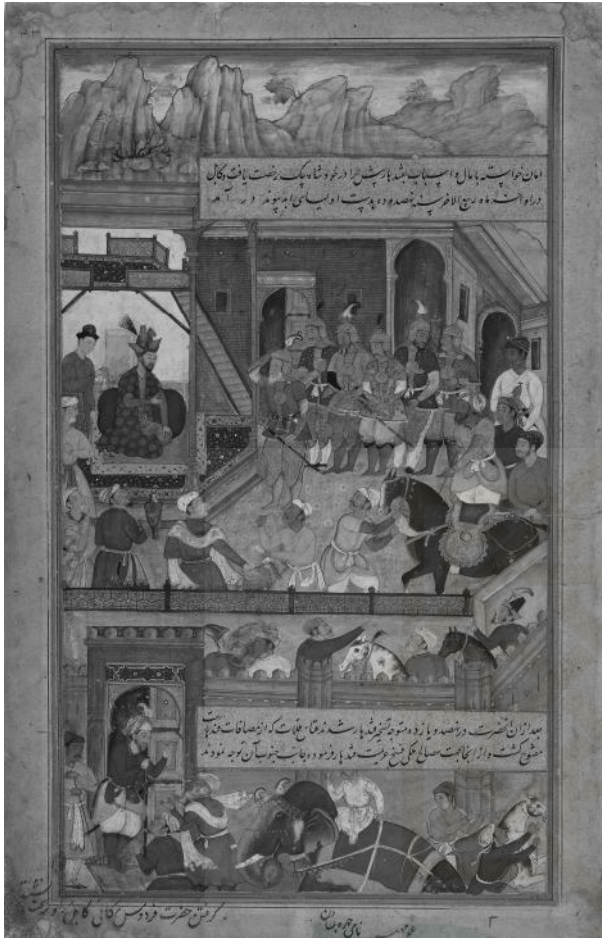 امان خواسته با مال و اسباب بقندهار پیش برادر خود شاه بیک رخصت یافت و کابل
در اواخر ماه ربیع الاخر سنه نهصد و ده بدست اولیای ابد پیوند در آمد
بعد از ان انحضرت در نهصد و یازده متوجه تسخیر قندهار شدند قلعه قلات که از مضافات قندهار است
مفتوح گشت و از انجا بجهت مصالح ملکی فسخ عزیمت قندهار فرموده بجانب جنوب آن توجه نمودند
گرفتن حضرت فردوس مکانی کابل
نامی چهره